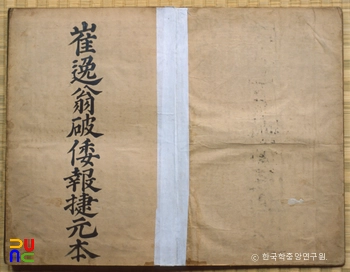 崔逸翁破倭報捷元本
© 한국학중앙연구원